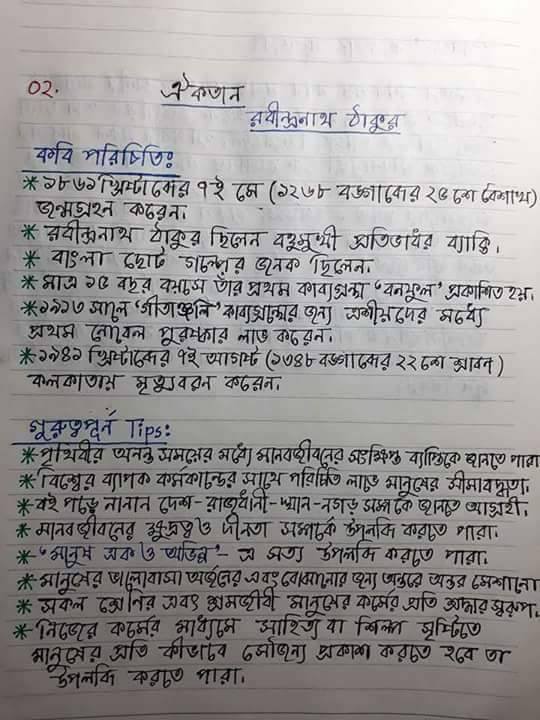 02.
ঐকতান
রবীন্দ্রনাথ ঠাকুর
কবি পরিচিতিঃ
* ১৮৬১ খ্রিষ্টাব্দের ৭ই মে (১২৬৮ বঙ্গাব্দের ২৫ শে বৈশাখ)
জন্মগ্রহন করেন।
* রবীন্দ্রনাথ ঠাকুর ছিলেন বহুমুখী প্রতিভাধর ব্যাক্তি।
* বাংলা ছোট গল্পের জনক ছিলেন।
* মাত্র ১৫ বছর বয়সে তাঁর প্রথম কাব্যগ্রন্থ 'বনফুল' প্রকাশিত হয়।
* ১৯১৩ সালে 'গীতাঞ্জলি' কাব্যগ্রন্থের জন্য এশীয়দের মধ্যে
প্রথম নোবেল পুরষ্কার লাভ করেন।
* ১৯৪১ খ্রিষ্টাব্দের ৭ই আগষ্ট (১৩৪৮ বঙ্গাব্দের ২২ শে শ্রাবন)
কলকাতায় মৃত্যুবরন করেন।
গুরুত্বপূর্ন Tips:
* পৃথিবীর অনন্ত সময়ের মধ্যে মানবজীবনের সংক্ষিপ্ত ব্যাপ্তিকে জানতে পারা
* বিশ্বের ব্যাপক কর্মকান্ডের সাথে পরিচিতি লাভে মানুষের সীমাবদ্ধতা।
* বই পড়ে নানান দেশ-রাজধানী-স্থান-নগর সম্পর্কে জানতে আগ্রহী।
* মানবজীবনের ক্ষুদ্রত্ব ও দীনতা সম্পর্কে উপলব্দি করতে পারা।
* 'মানুষ এক ও অভিন্ন'- এ সত্য উপলব্দি করতে পারা।
* মানুষের ভালোবাসা অর্জনের এবং বোঝানোর জন্য অন্তরে অন্তর মেশানো
* সকল শ্রেনির এবং শ্রমজীবী মানুষের কর্মের প্রতি শ্রদ্ধার স্বরূপ।
* নিজের কর্মের মাধ্যমে সাহিত্য বা শিল্প সৃষ্টিতে
মানুষের প্রতি কীভাবে সৌজন্য প্রকাশ করতে হবে তা
উপলব্দি করতে পারা।